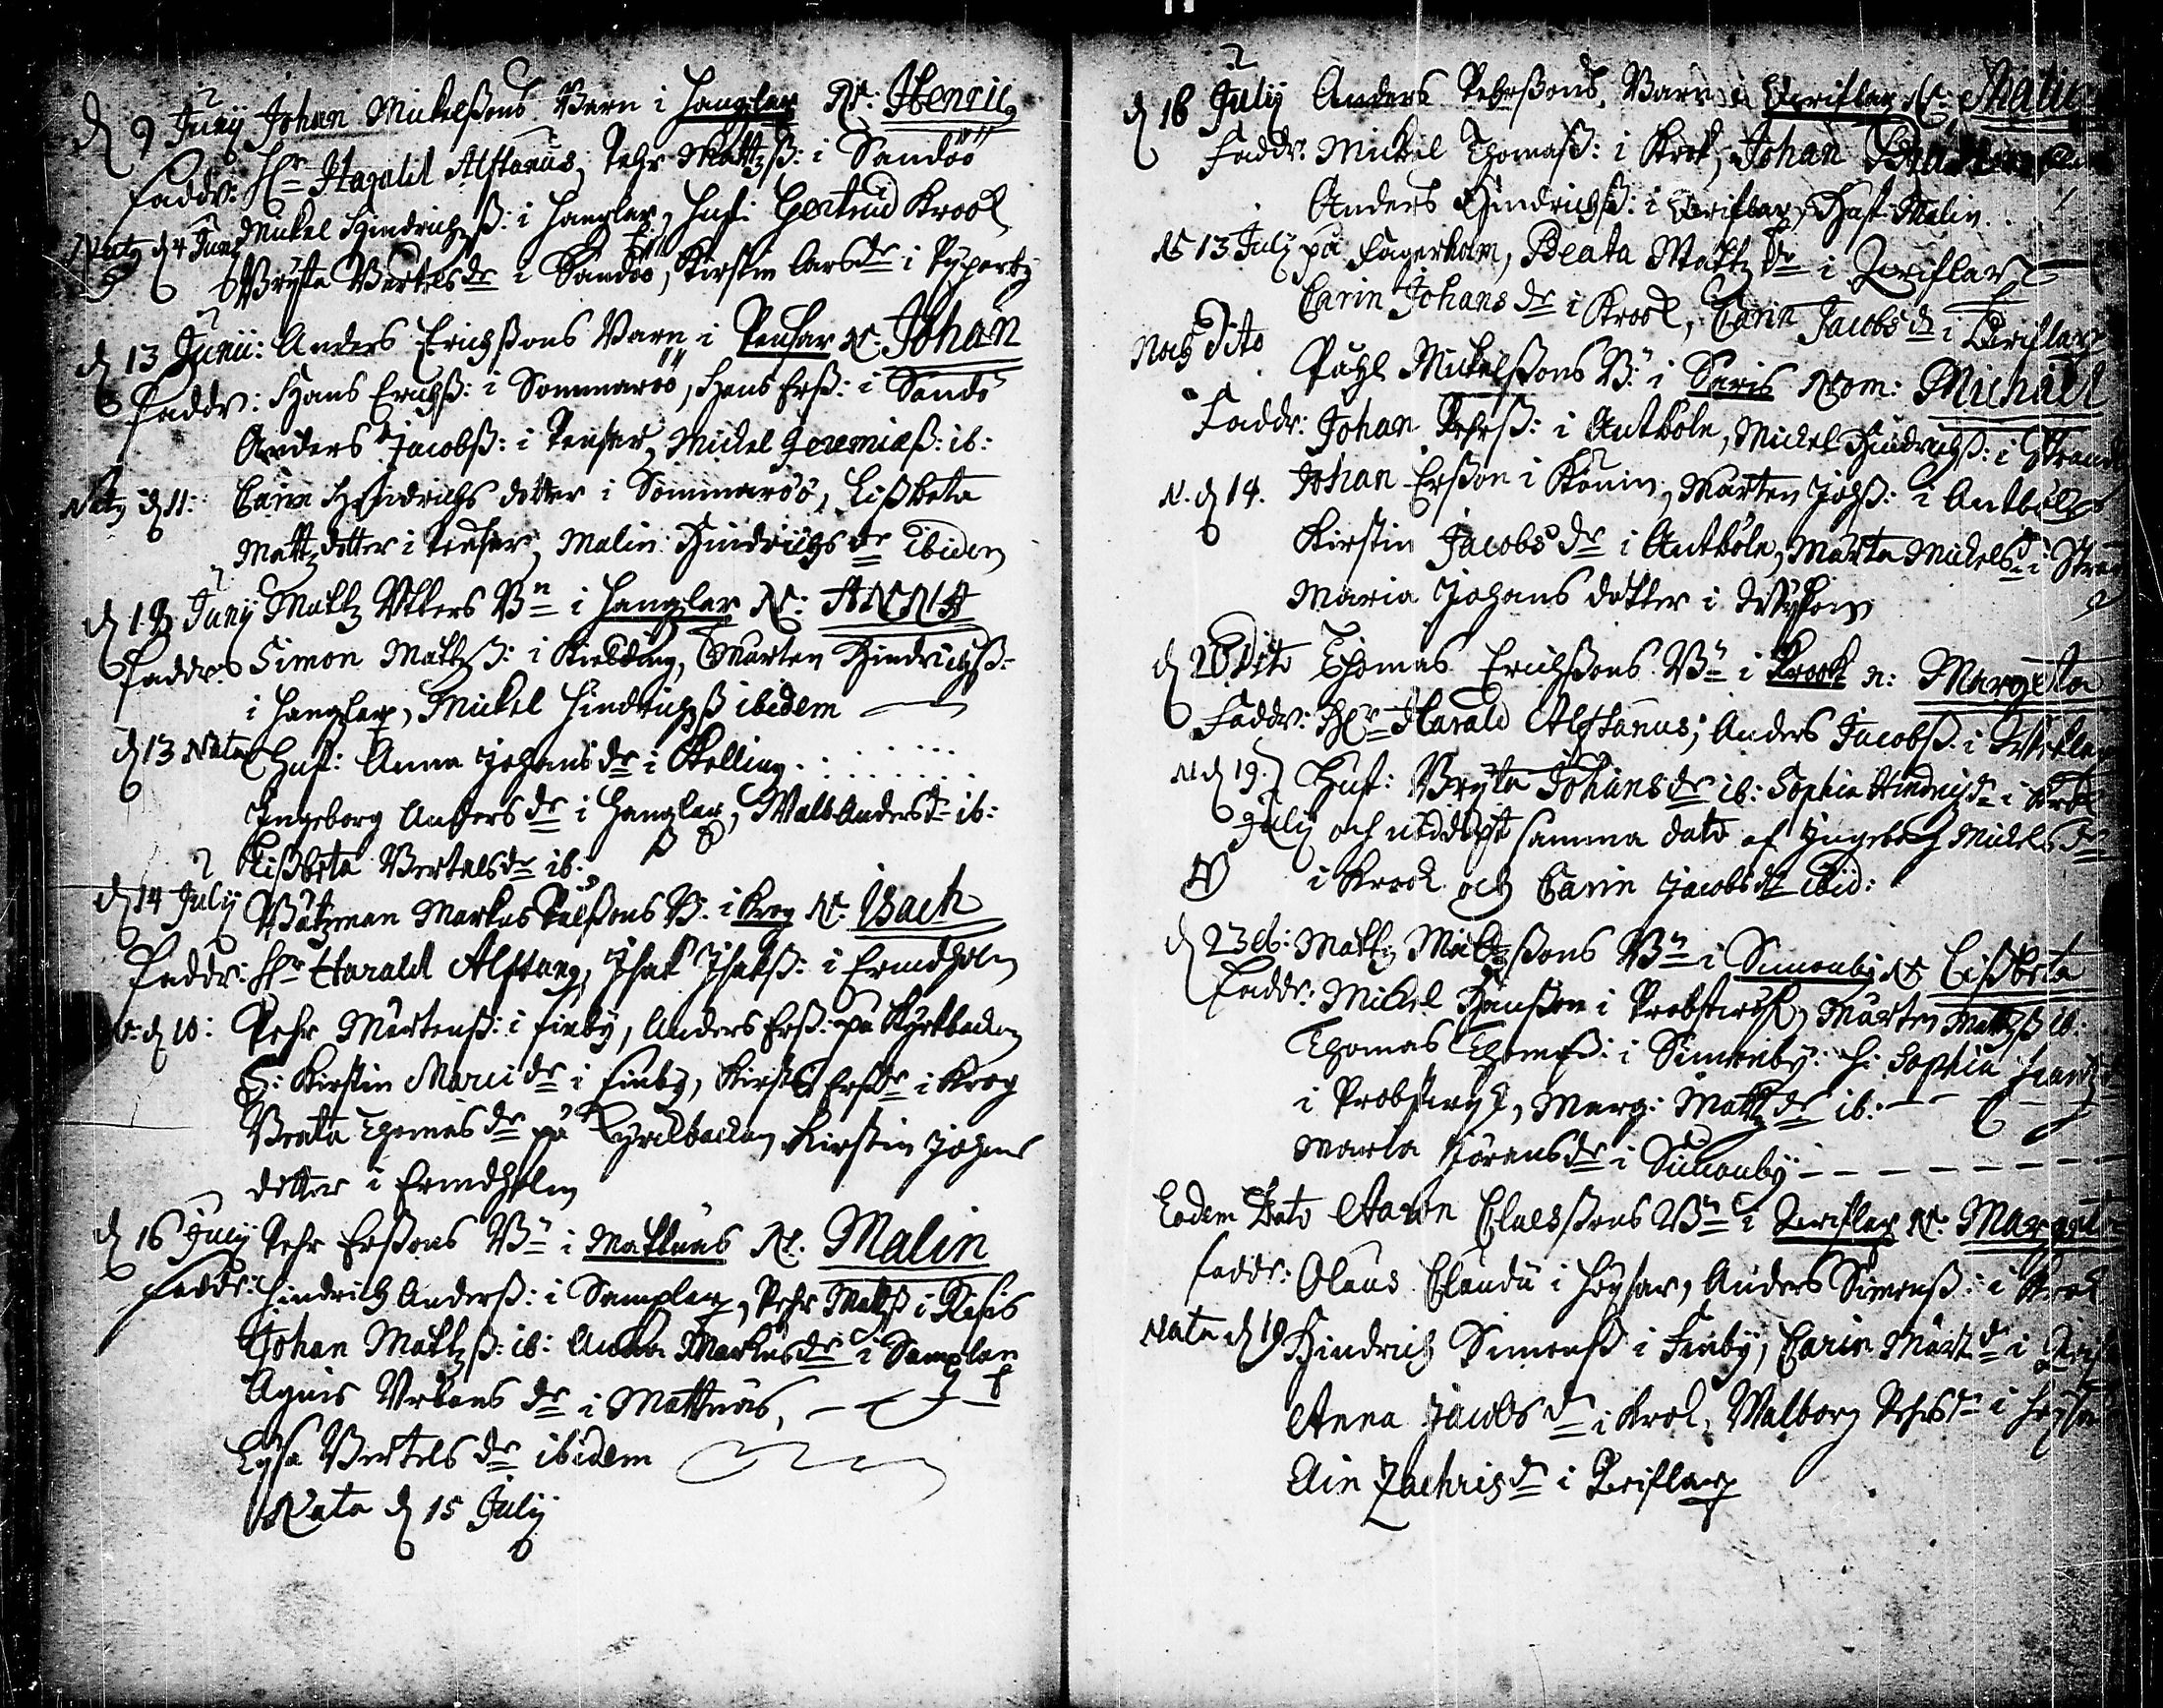 d 9 Junij Johan Mickelßons Barn i Hangslax N: Henric9
Faddr: Hr Harald Alftanus, Pehr Mattzß: i Sandöö
Mickel Hindrichzß: i Hangslax, Huf: Gertrud Krook
Natq d 4 Junij
Bryta Bertels dr i Sandöö, Kirstin Lars dr i
d 13 Junii: Anders Erichßons Barn i Pensar N: Johan
Faddr: Hans Erichß: i Sommaröö, Hans Erß: i Sandö
Anders Jacobß: i Pensar, Mickel Jeremiæß: ib:
Natq d 11: Carin Hindrichs dotter i Sommaröö, Lißbeta
Mattz dotter i Pensar, Malin Hindrichs dr Ibidem
d 13 Junij Mattz Bn i Hangslax N: ANNA
Faddr: Simon Mattzß: i Kielding, Mårten Hindrichß:
i Hangslax, Mickel Hindrichzß ibidem
d 13 Nata Huf: Anna Johans dr i Kelling
Ingeborg Anders dr i Hangslax, Malb: Anders dr ib:
Lißbeta Bertels dr ib:
d 14 July Båtzman Markus Pålßons B: i Krog N: Isach
Faddr: Hr Harald Alftang, Isak Isakß: i Ermdholm
N: d 10: Pehr Mårtenß: i Finby, Anders Erß: på Kyrkbacken
H: Kirstin Marci dr i Finby, Kirstin Ers dr i Krog
Beata Thomas dr på Kyrckbacken Kirstin Johans
dotter i Ermdholm
d 16 July Pehr Erßons Bn i Mattnäs N. Malin
Faddr: Hindrich Anderß: i Samslax, Pehr Mattzß i Risis
Johan Mattzß: ib: Anna Markus dr i Samslax
Agnis Urbans dr i Mattnäs,
Lysa Bertels dr ibidem
Nata d 15 July
d 16 July Anders Pehrßons Barn i N: Malin
Faddr: Mickel Thomaß: i Krok, Johan
Anders Hindrichß: i Hust: Malin
N 13 July på Fagerholm, Beata Mattz dr i
Carin Johans dr i Krook, Carin Jacobs dr i
Noch Dito Påhl Mickelßons B: i Seris Nom: Michäel
Faddr: Johan Pehrß: i Antböle, Mickel Hindrichß: i
N. d 14. Johan Erßon i Könin, Mårten Johß: i Antböle
Kirstin Jacobs dr i Antböle, Märta Mickels dr i
Maria Johans dotter i
d 20 Dito Thomas Erichßons Bn i Krook n: Margeta
Faddr: Hr Harald Alftanus; Anders Jacobß: i
N d 19. Huf: Bryta Johans dr ib: Sophia Hindrichs dr i Krok
July och nöddöpt samma dato af Ingeborg Mickels dr
i Krock och Carin Jacobs dr ibid:
d 23 eb: Mattz Mattzßons Bn i Simonby N Lißbeta
Faddr: Mickel Hanßon i Probstvyk, Mårten Mattzß ib:
Thomas Thomæß: i Simonby: H: Sophia
i Probstvyk, Marg: Mattz dr ib:
Maria Jörans dr i Simonby
Eodem Dato Aaron Claesßons Bn i N: Marget
Faddr: Olaus Claudii i Höysar, Anders Simonß: i Krok
Nata d 19 Hindrich Simonß i Finby, Carin Mårt dr i
Anna Jacobs dr i Krok, Walborg Pehrs dr i
Elin Zachris dr i